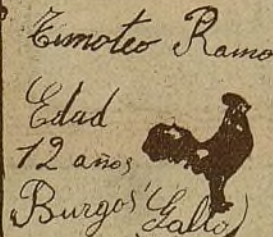 Timoteo Ramo
Edad
12 años
Burgos (Gallo)